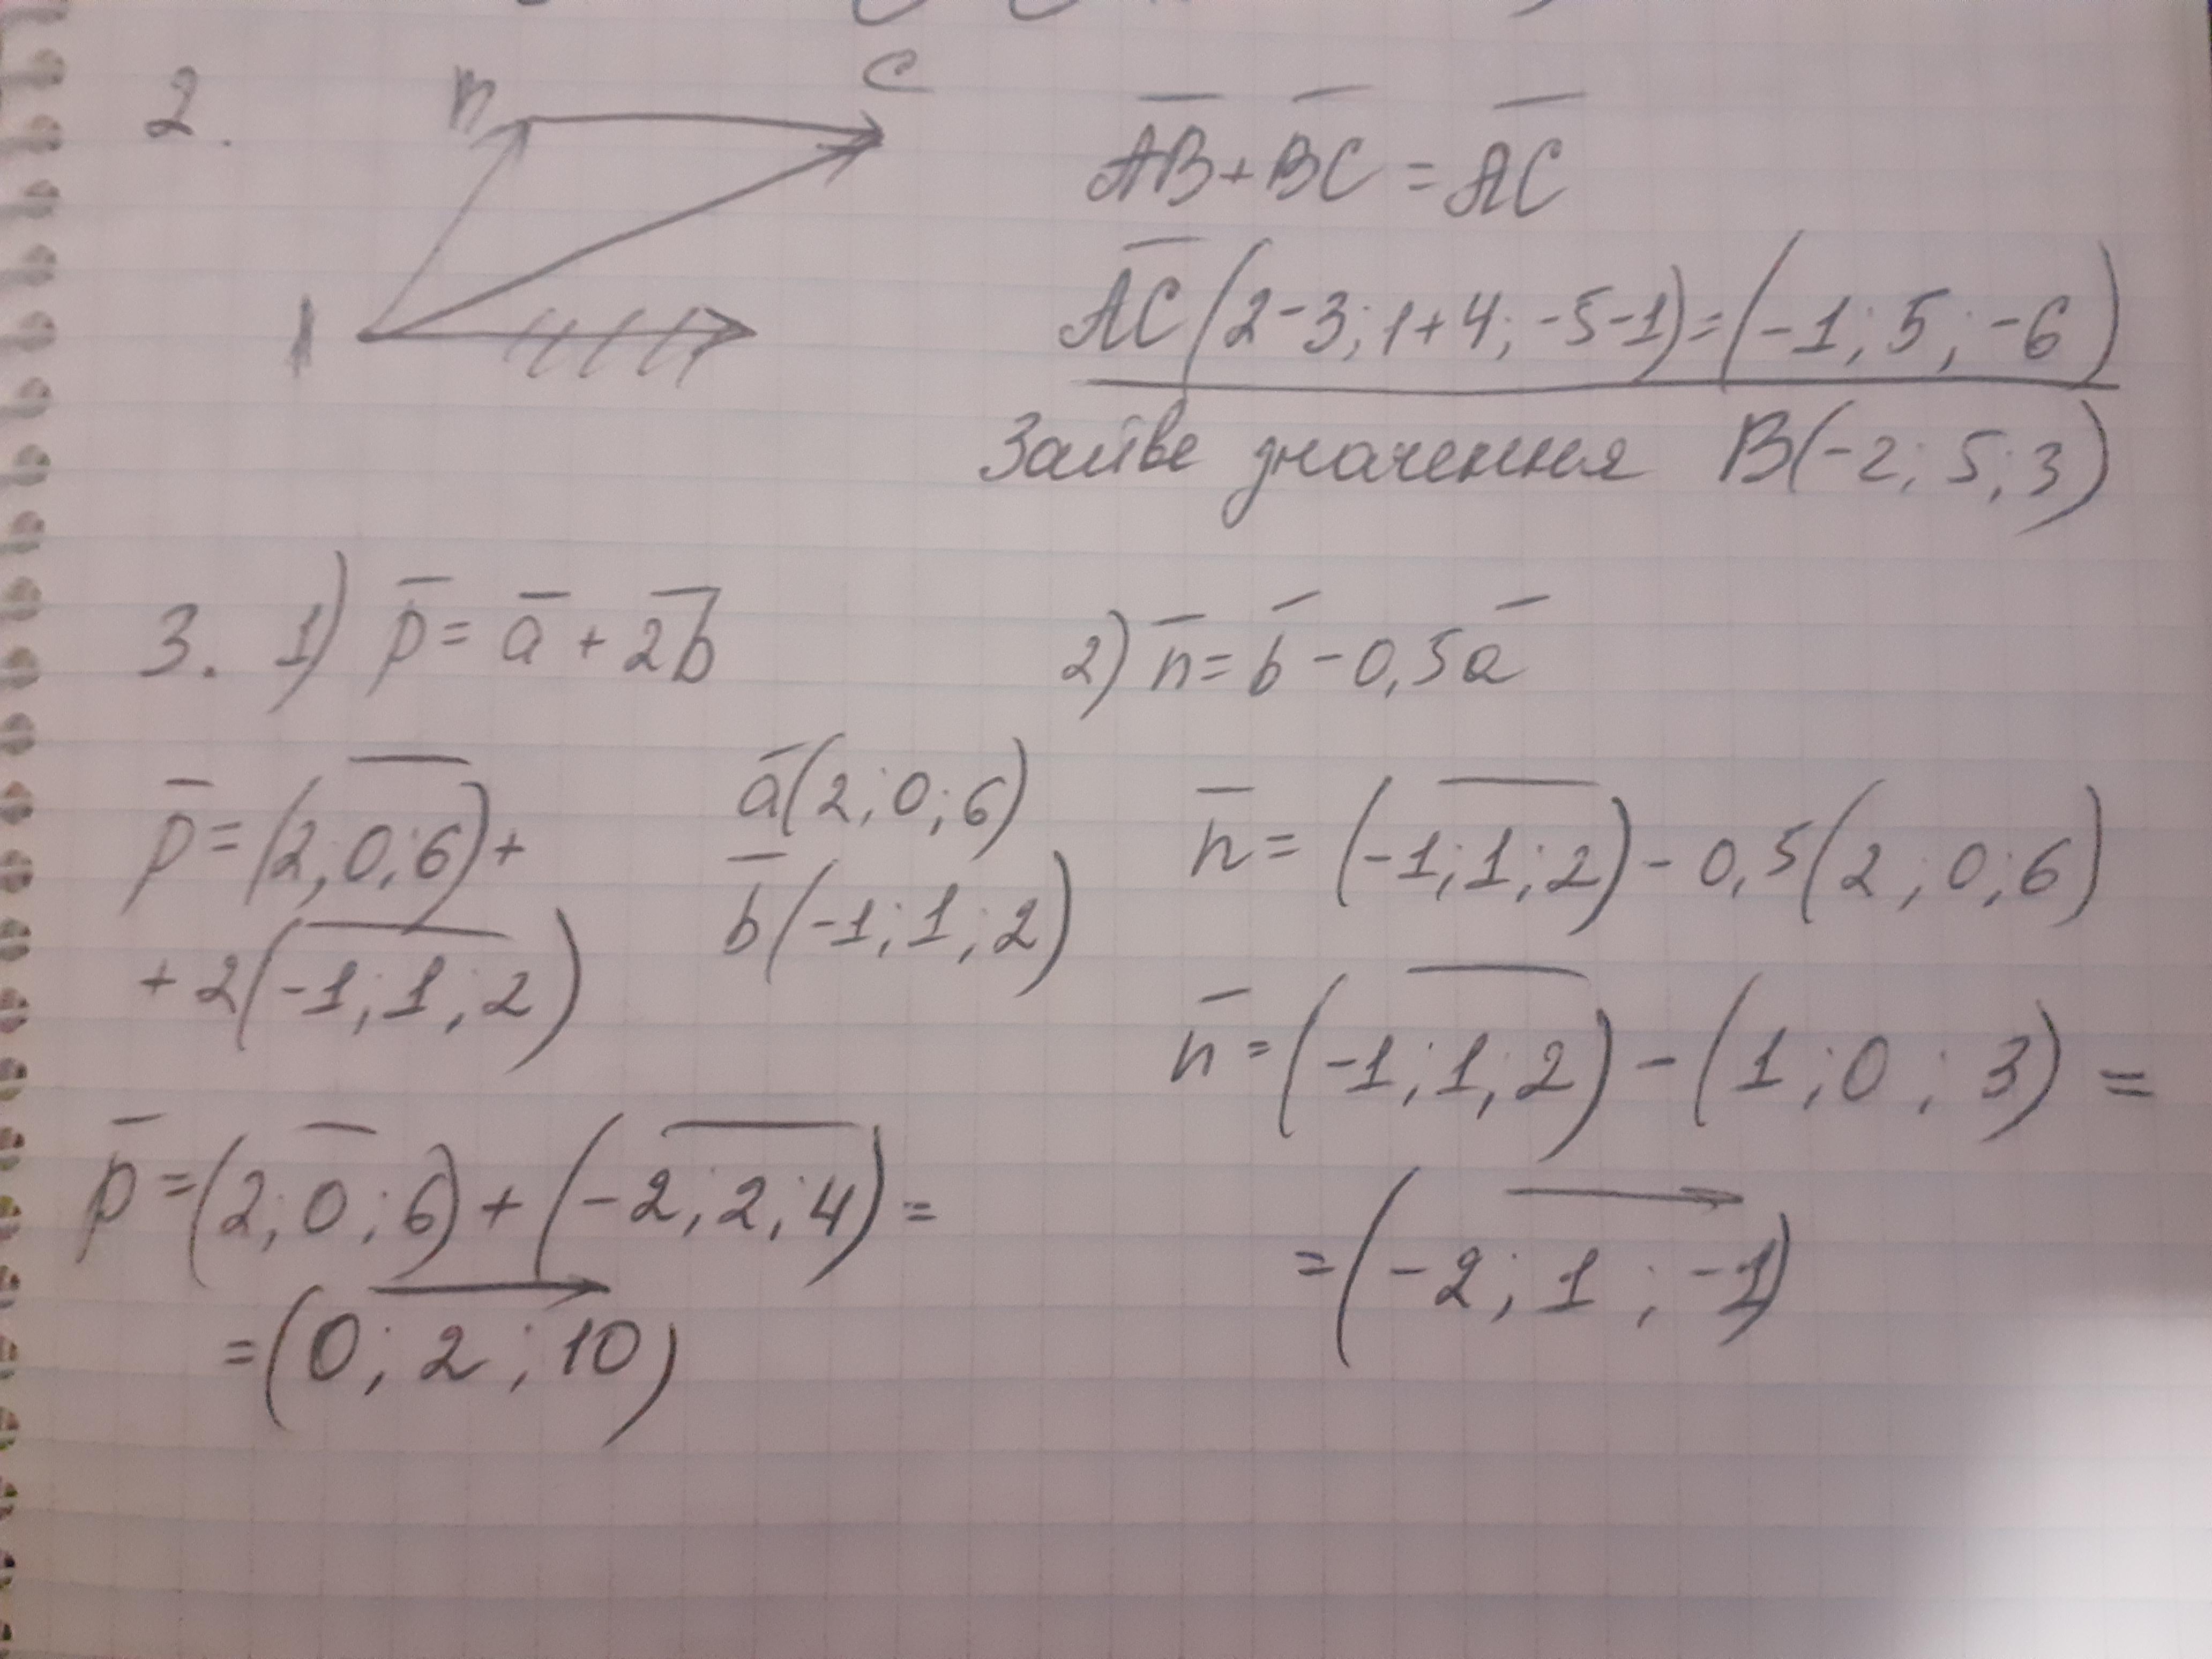 2.
B
C
A
AB + BC = AC
AC (2-3; 1+4; -5-1) = (-1; 5; -6)
Зайве значення B(-2; 5; 3)
3. 1) p = a + 2b
p = (2; 0; 6) +
+ 2(-1; 1; 2)
a(2; 0; 6)
b(-1; 1; 2)
p = (2; 0; 6) + (-2; 2; 4) =
= (0; 2; 10)
2) n = b - 0,5a
n = (-1; 1; 2) - 0,5(2; 0; 6)
n = (-1; 1; 2) - (1; 0; 3) =
= (-2; 1; -1)